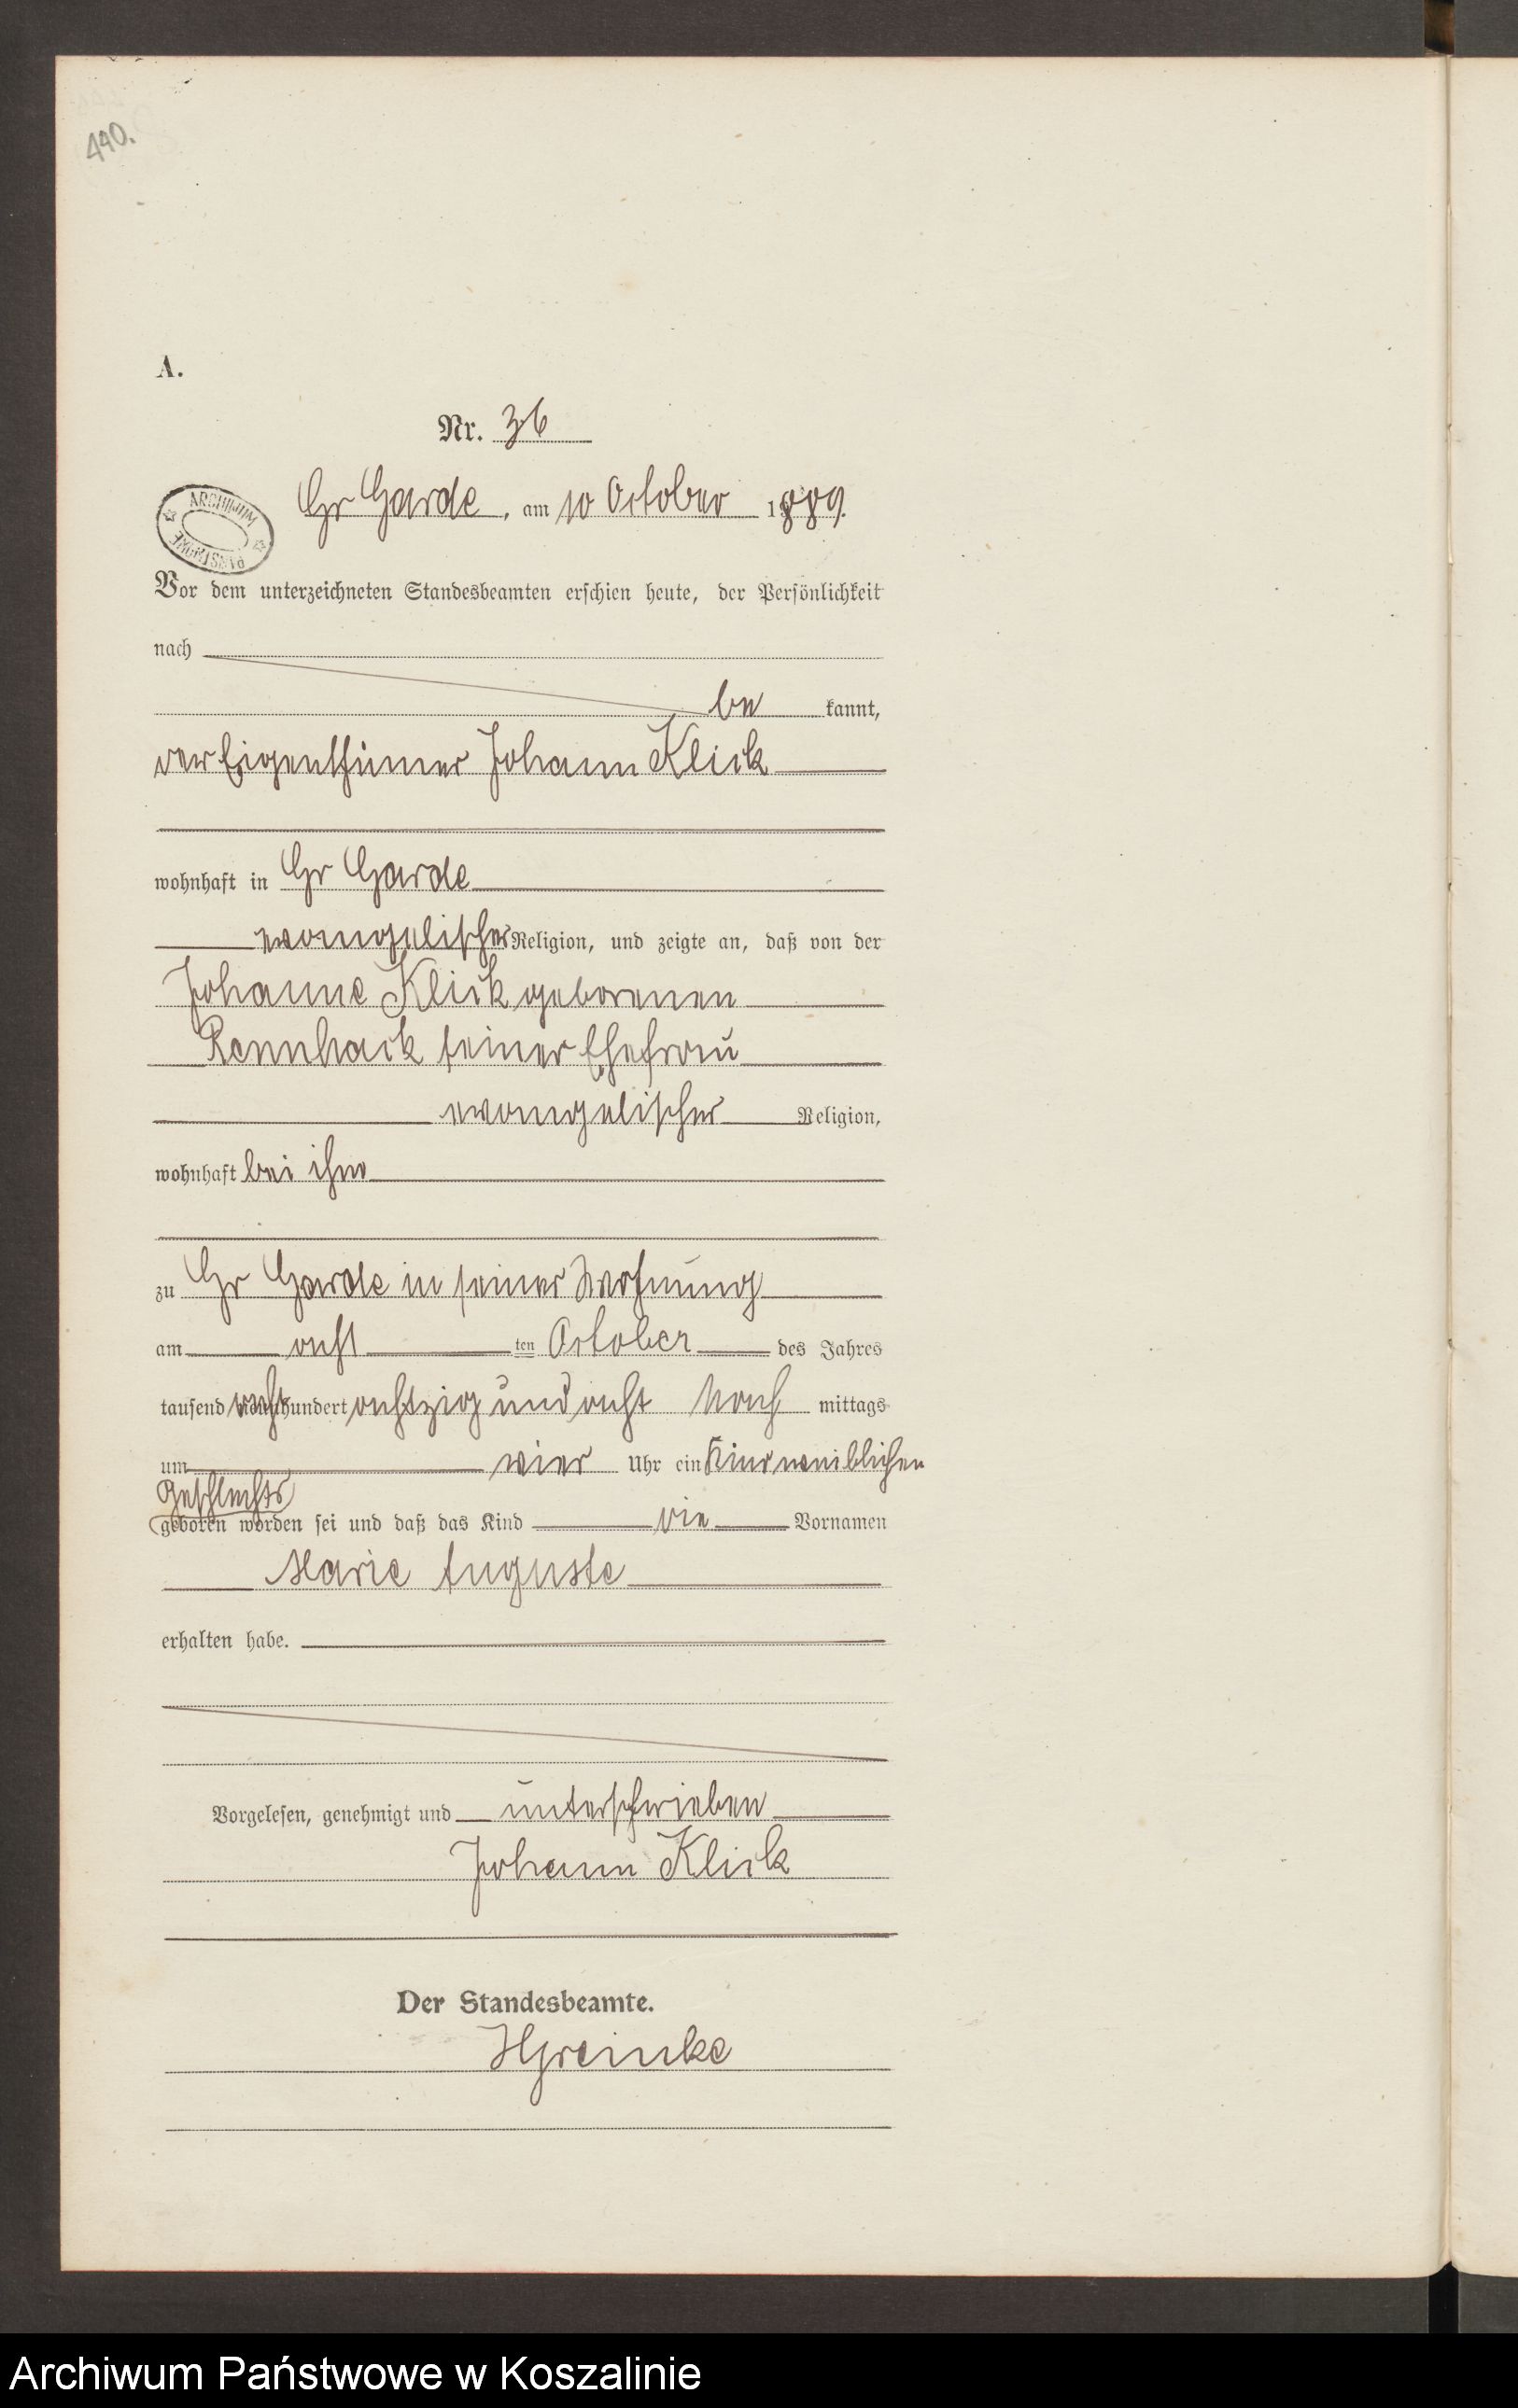 440.
A.
Nr. 36
ARCHIWUM PAŃSTWOWE
Gr Garde, am 10 October 1889.
Vor dem unterzeichneten Standesbeamten erschien heute, der Persönlichkeit
nach
be kannt,
der Eigenthümer Johann Klick
wohnhaft in Gr Garde
evangelischer Religion, und zeigte an, daß von der
Johanne Klick geborenen
Rennhack seiner Ehefrau
evangelischer Religion,
wohnhaft bei ihm
zu Gr Garde in seiner Wohnung
am acht ten October des Jahres
tausend achthundert achtzig und acht Nach mittags
um vier Uhr ein Kind weiblichen
Geschlechts
geboren worden sei und daß das Kind die Vornamen
Marie Auguste
erhalten habe.
Vorgelesen, genehmigt und unterschrieben
Johann Klick
Der Standesbeamte.
HGreinke
Archiwum Państwowe w Koszalinie